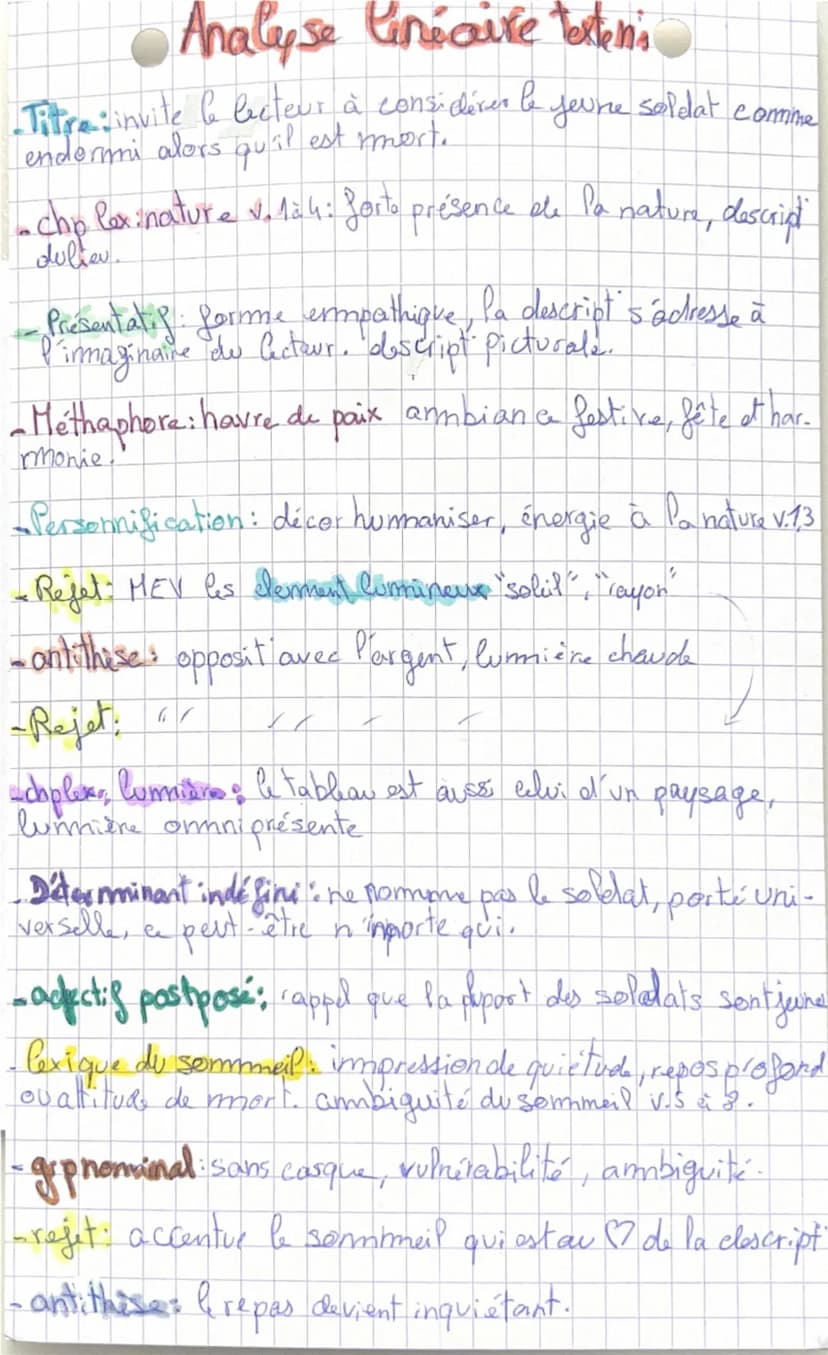 Analyse linéaire texte n°1
- Titre : invite le lecteur à considérer le jeune soldat comme
endormi alors qu'il est mort.
- chp lex : nature v. 1 à 4 : forte présence de la nature, descript°
du lieu.
- Présentatif : forme empathique, la descript° s'adresse à
l'imaginaire du lecteur. descript° picturale.
- Méthaphore : havre de paix ambiance festive, fête et har-
monie.
- Personnification : décor humaniser, énergie à la nature v.1,3
- Rejet : MEV les élement lumineux "soleil", "rayon"
- antithèse : opposit° avec l'argent, lumière chaude
- Rejet : " " " "
- chp lex, lumière : le tableau est aussi celui d'un paysage,
lumière omniprésente
- Déterminant indéfini : ne nomme pas le soldat, porté uni-
verselle, ce peut-être n'inporte qui.
- adjectif postposé : rappel que la pluport des soldats sont jeune
- lexique du sommeil : impression de quiétude, repos profond
ou attitude de mort. ambiguité du sommeil v.5 à 8.
- grp nominal : sans casque, vulnérabilité, ambiguité.
- rejet : accentue le sommeil qui est au ♡ de la descript°
- antithèse : le repas devient inquiétant.